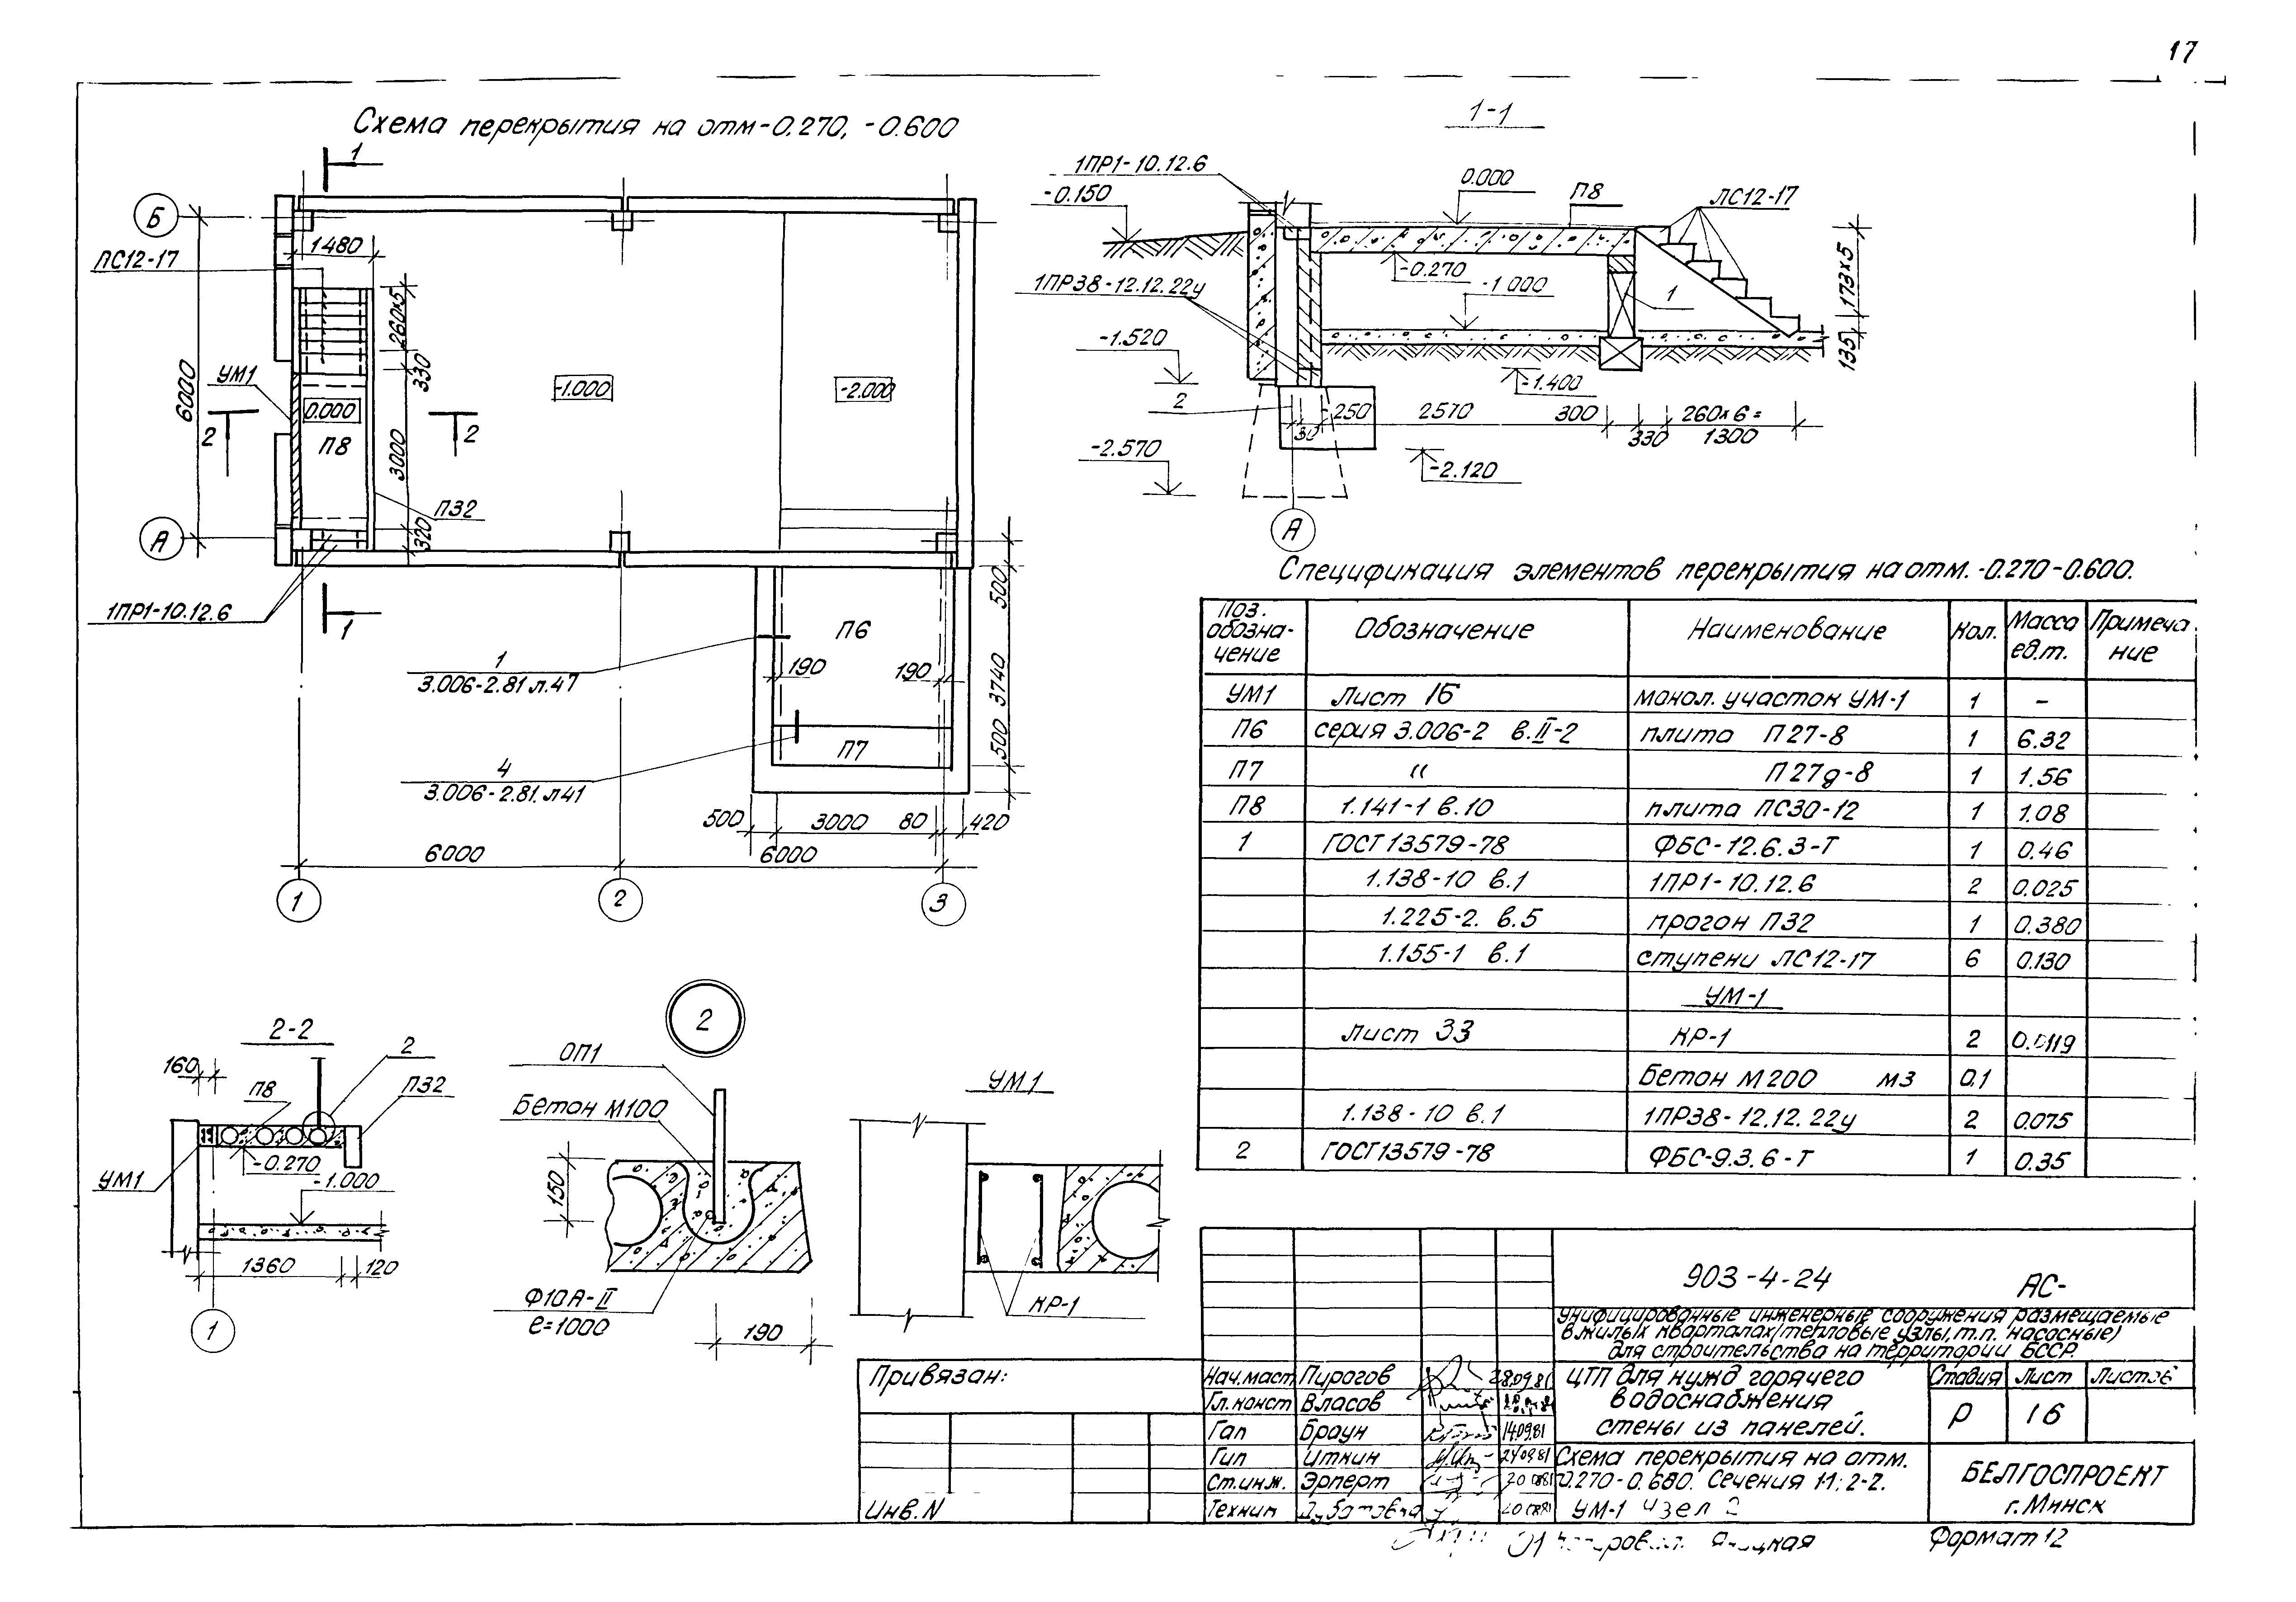 17
Схема перекрытия на отм-0.270, -0.600
1
Б
1480
ЛС12-17
260х5
330
УМ1
6000
0.000
-1.000
-2.000
2
2
П8
3000
П32
320
А
1ПР1-10.12.6
1
П6
500
1
3.006-2.81 л.47
190
190
3740
П7
500
4
3.006-2.81. л41
500
3000
80
420
6000
6000
1
2
3
1-1
1ПР1-10.12.6
-0.150
0.000
П8
ЛС12-17
-0.270
-1.000
1ПР38-12.12.22у
1
173х5
135
-1.520
-1.400
2
250
2570
300
260х6=
30
330
1300
-2.570
-2.120
А
Спецификация элементов перекрытия на отм.-0.270-0.600.
Поз. обозна-чение Обозначение Наименование Кол. Масса ед.т. Примеча ние
УМ1 Лист 16 монол. участок УМ-1 1 -
П6 серия 3.006-2 в.II-2 плита П27-8 1 6.32
П7 " П27д-8 1 1.56
П8 1.141-1 в.10 плита ПС30-12 1 1.08
1 ГОСТ 13579-78 ФБС-12.6.3-Т 1 0.46
1.138-10 в.1 1ПР1-10.12.6 2 0.025
1.225-2. в.5 прогон П32 1 0.380
1.155-1 в.1 ступени ЛС12-17 6 0.130
УМ-1
лист 33 КР-1 2
Бетон М200 м3 0.1
1.138-10 в.1 1ПР38-12.12.22у 2 0.075
2 ГОСТ13579-78 ФБС-9.3.6-Т 1 0.35
2-2
160
2
П8
П32
-0.270
УМ1
-1.000
1360
120
1
2
ОП1
Бетон М100
150
Ф10А-II
е=1000
190
УМ1
КР-1
903-4-24
АС-
Унифицированные инженерные сооружения размещаемые
в жилых кварталах(тепловые узлы, т.п. насосные)
для строительства на территории БССР
Привязан:
Инв.N
Нач.маст. Пирогов 28.09.81
Гл.конст Власов
Гап Браун 14.09.81
Гип Иткин 24.09.81
Ст.инж. Эрперт
Техник
ЦТП для нужд горячего
водоснабжения
стены из панелей.
Стадия Лист Листов
Р 16
Схема перекрытия на отм.
0.270-0.680. Сечения 1-1; 2-2.
УМ-1 Узел 2
БЕЛГОСПРОЕКТ
г.Минск
Формат 12